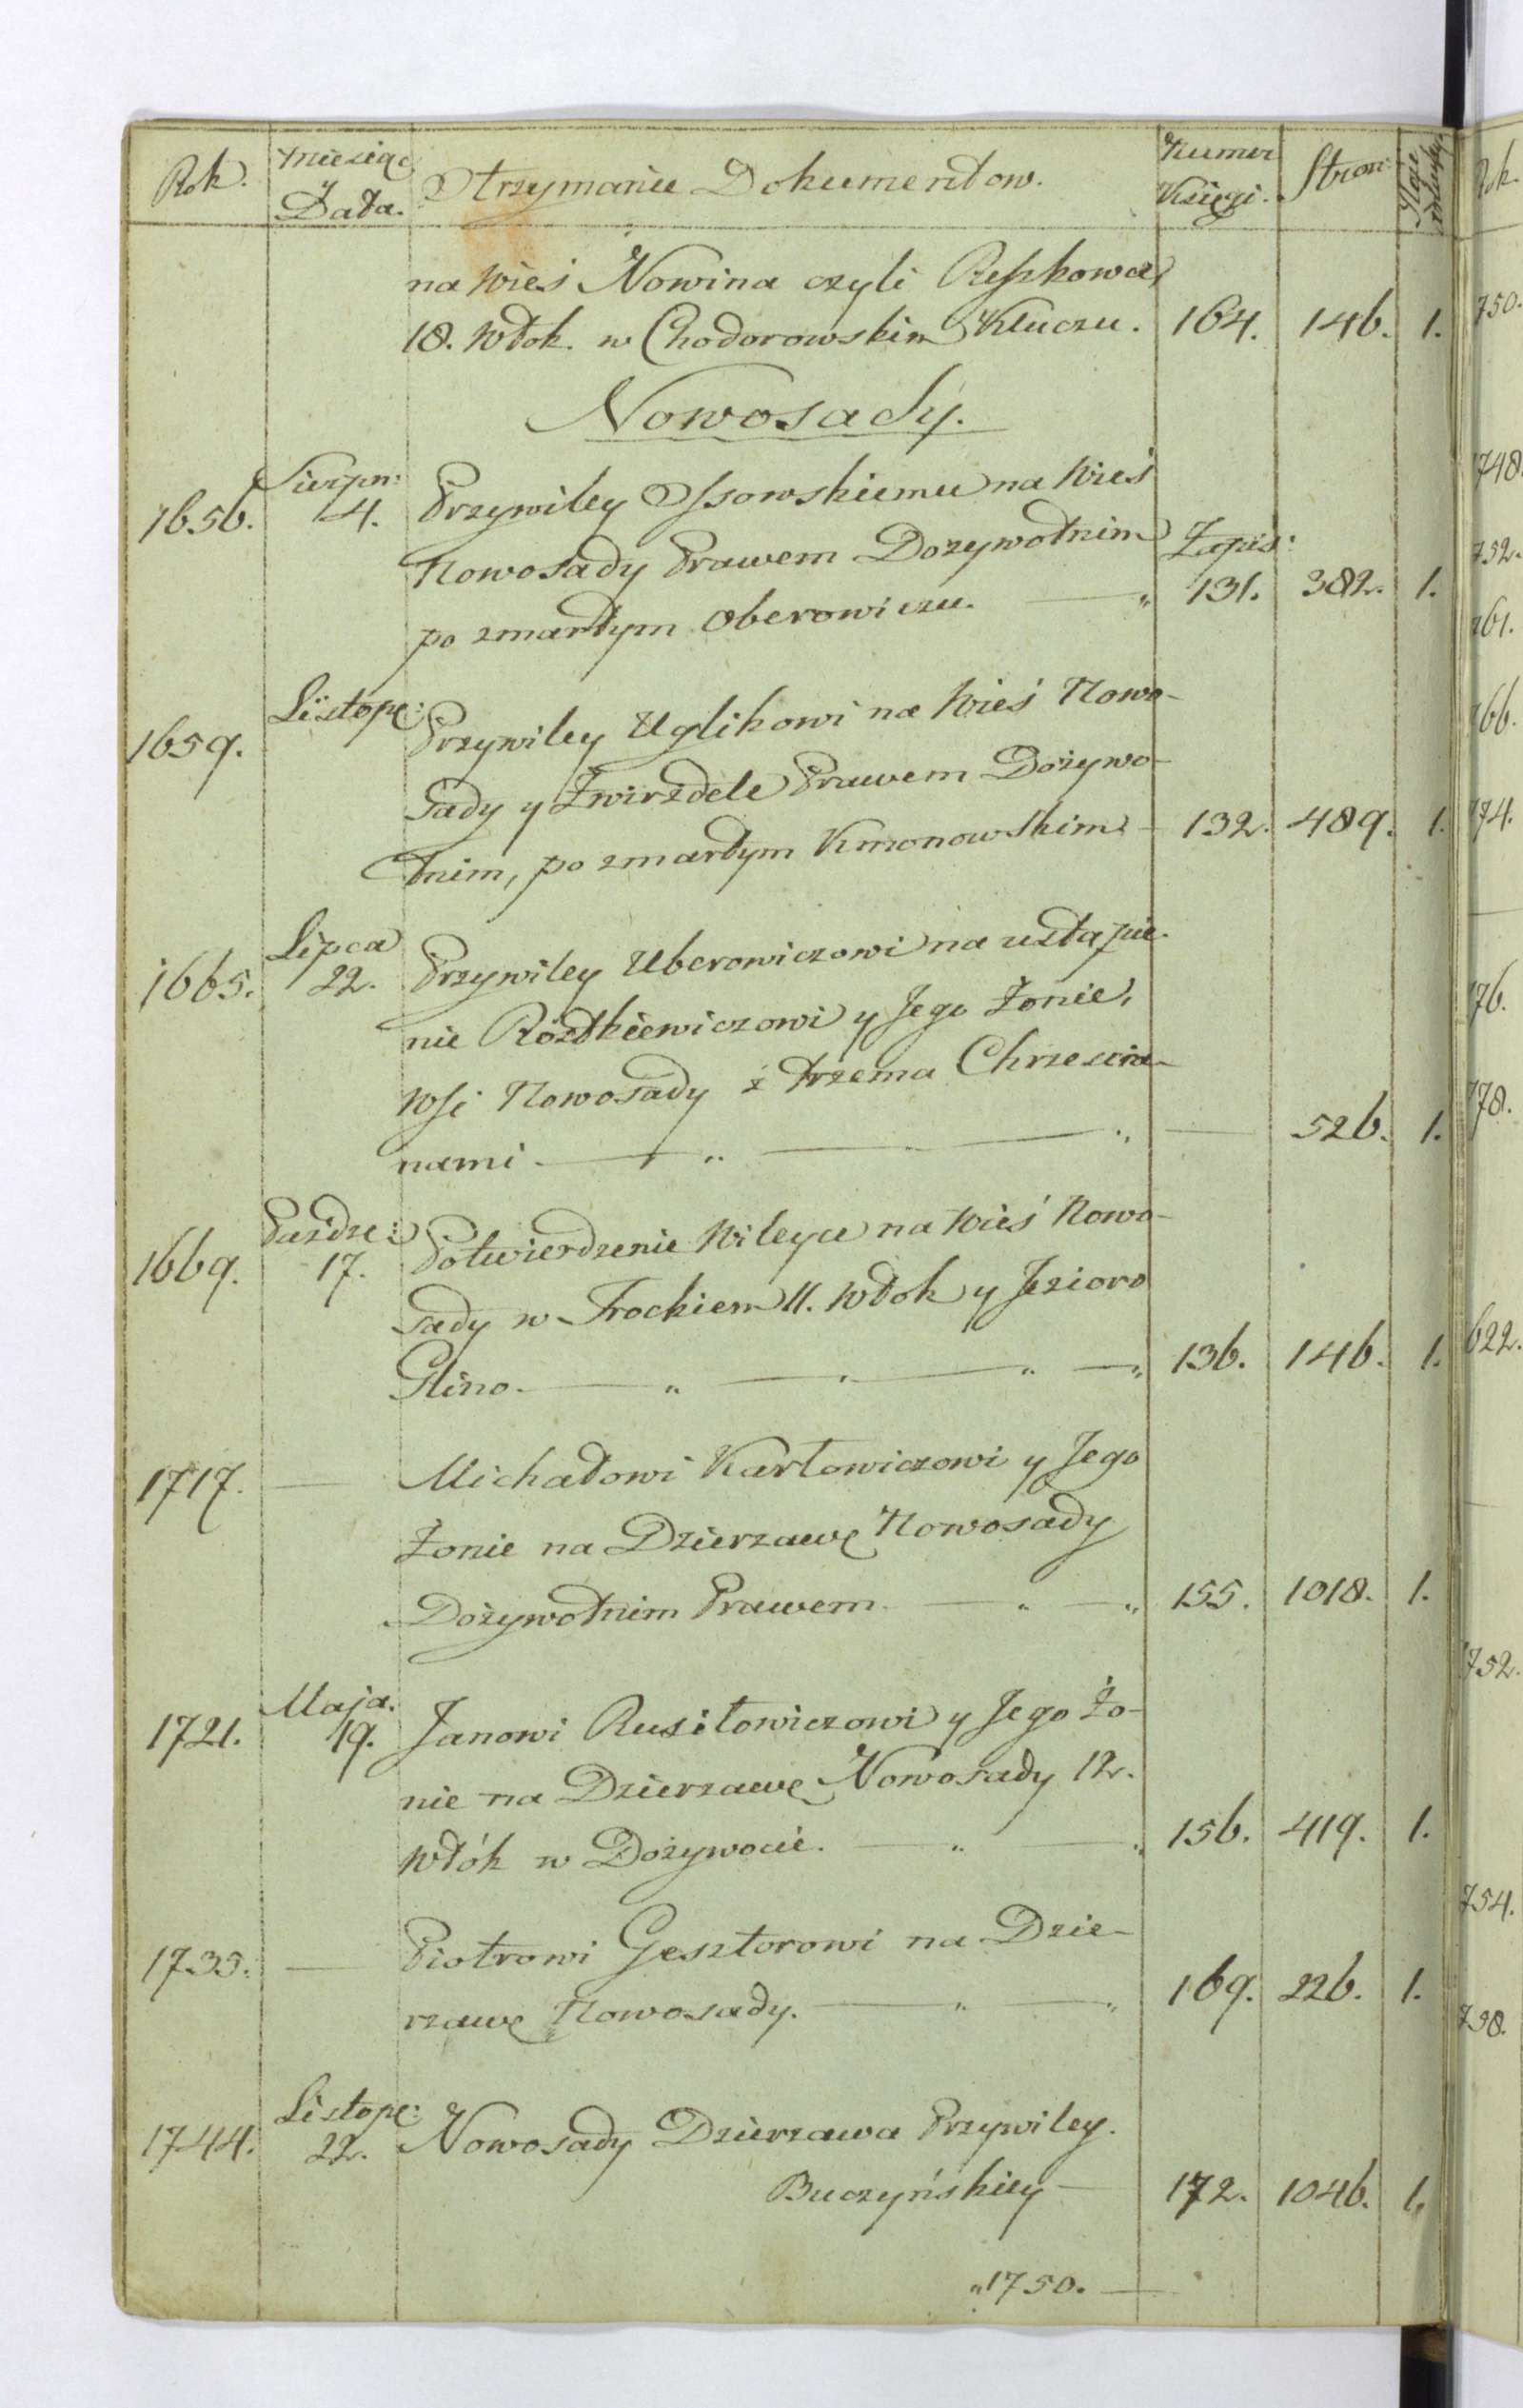 Rok. Miesiąc y Data. Otrzymanie Dokumentow. Numer Księgi. Stron:
na Wieś Nowina czyli Reszkowce
18. Włok. w Chodorowskim Kluczu. 164. 146. 1.
Nowosady.
1656. Sierpn: 4. Przywiley Ossowskiemu na Wieś
Nowosady Prawem Dozywotnim Zapis:
po zmarłym Oberowiczu. — „ 131. 382. 1.
1659. Listopa: Przywiley Uglikowi na Wieś Nowo-
sady y Zwirzdele Prawem Dożywo-
tnim, po zmarłym Kmonowskim - 132. 489. 1.
1665. Lipca 22. Przywiley Uberowiczowi na ustąpie-
nie Rózdkiewiczowi y Jego Żonie,
Wsi Nowosady z trzema Chrzescia-
nami — „ — „ — 526. 1.
1669. Paźdze: 17. Potwierdzenie Wileyce na Wieś Nowo-
sady w Trockiem 11. Włok y Jezioro
Glino. — „ — „ — „ — „ 136. 146. 1.
1717. — Michałowi Karłowiczowi y Jego
Żonie na Dzierzawę Nowosady
Dożywotnim Prawem. — „ — „ 155. 1018. 1.
1721. Maja. 19. Janowi Rusiłowiczowi y Jego Żo-
nie na Dzierzawę Nowosady 12.
Włók w Dożywocie. — „ — „ 156. 419. 1.
1735. — Piotrowi Gesztorowi na Dzie-
rzawę Nowosady. — „ — „ 169. 226. 1.
1744. Listopa: 22. Nowosady Dzierzawa Przywiley.
Buczyńskiey — 172. 1046. 1.
„1750. —
Rok.
750.
748.
752.
761.
766.
774.
176.
778.
622.
752.
754.
758.